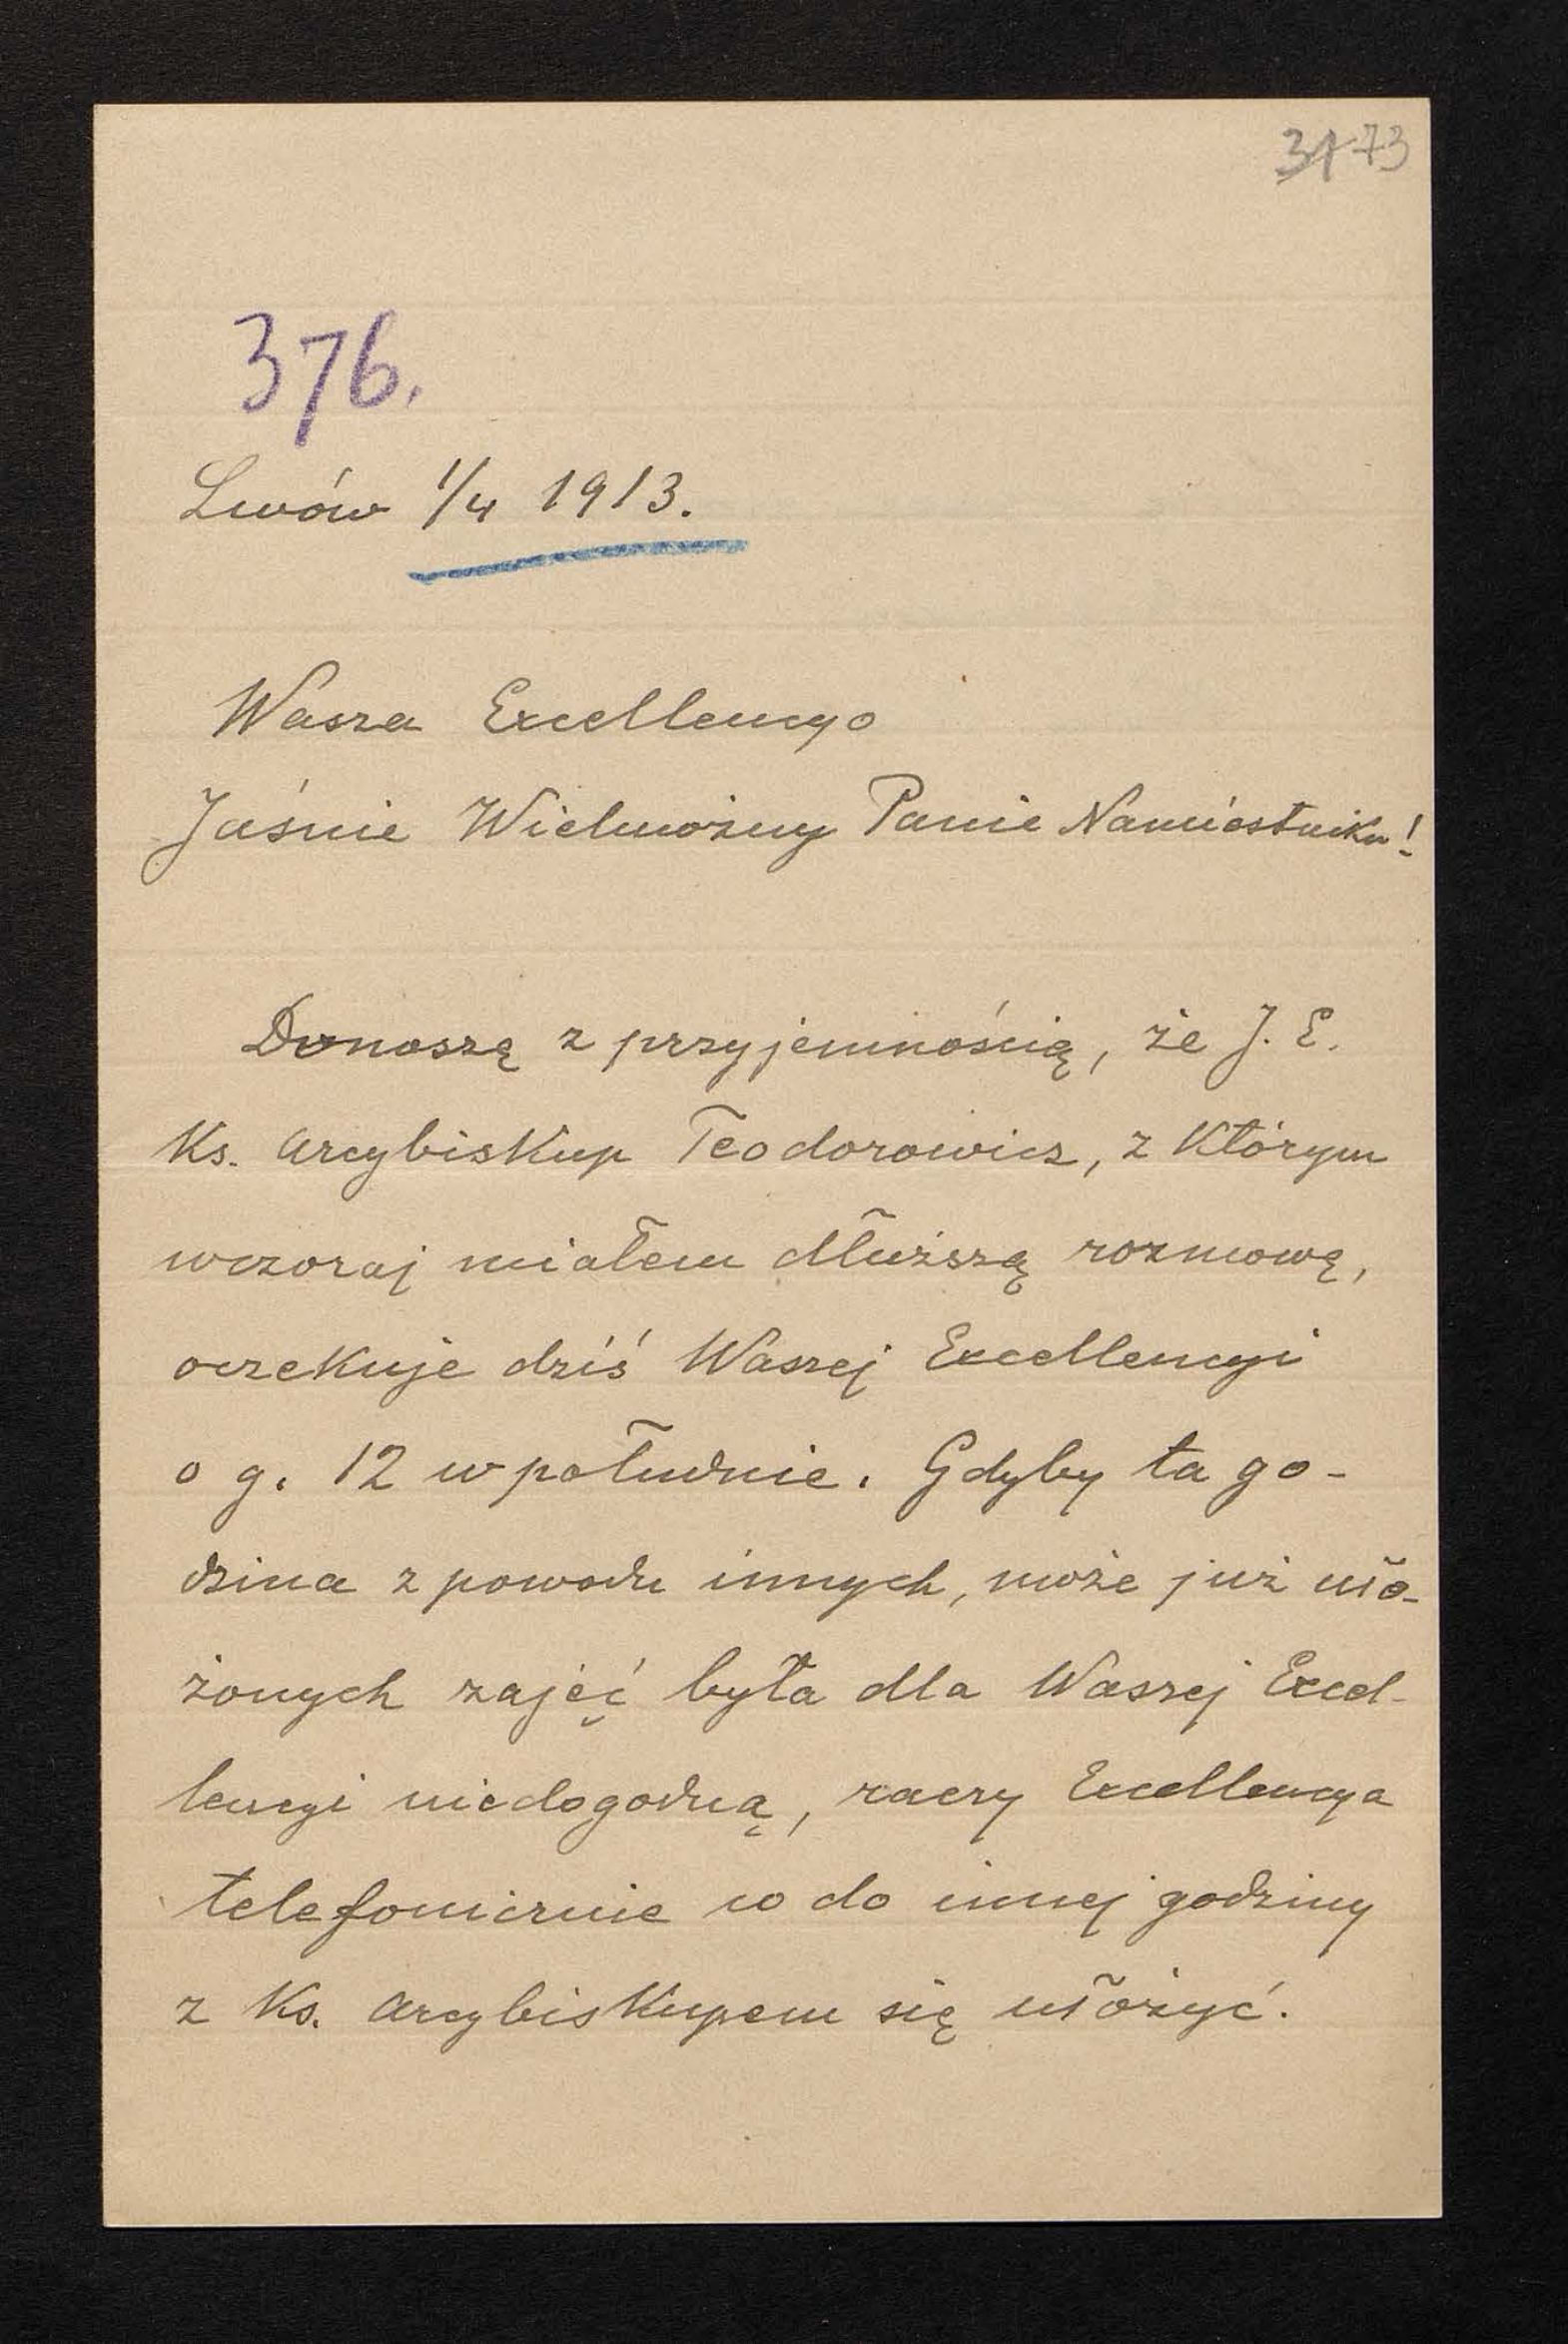 31 73
376.
Lwów 1/4 1913.
Wasza Excellencyo
Jaśnie Wielmożny Panie Namiestniku!
Donoszę z przyjemnością, że J. E.
Ks. Arcybiskup Teodorowicz, z którym
wczoraj miałem dłuższą rozmowę,
oczekuje dziś Waszej Excellencyi
o g. 12 w południe. Gdyby ta go-
dzina z powodu innych, może już uło-
żonych zajęć była dla Waszej Excel-
lencyi niedogodną, raczy Excellencya
telefonicznie co do innej godziny
z Ks. Arcybiskupem się ułożyć.